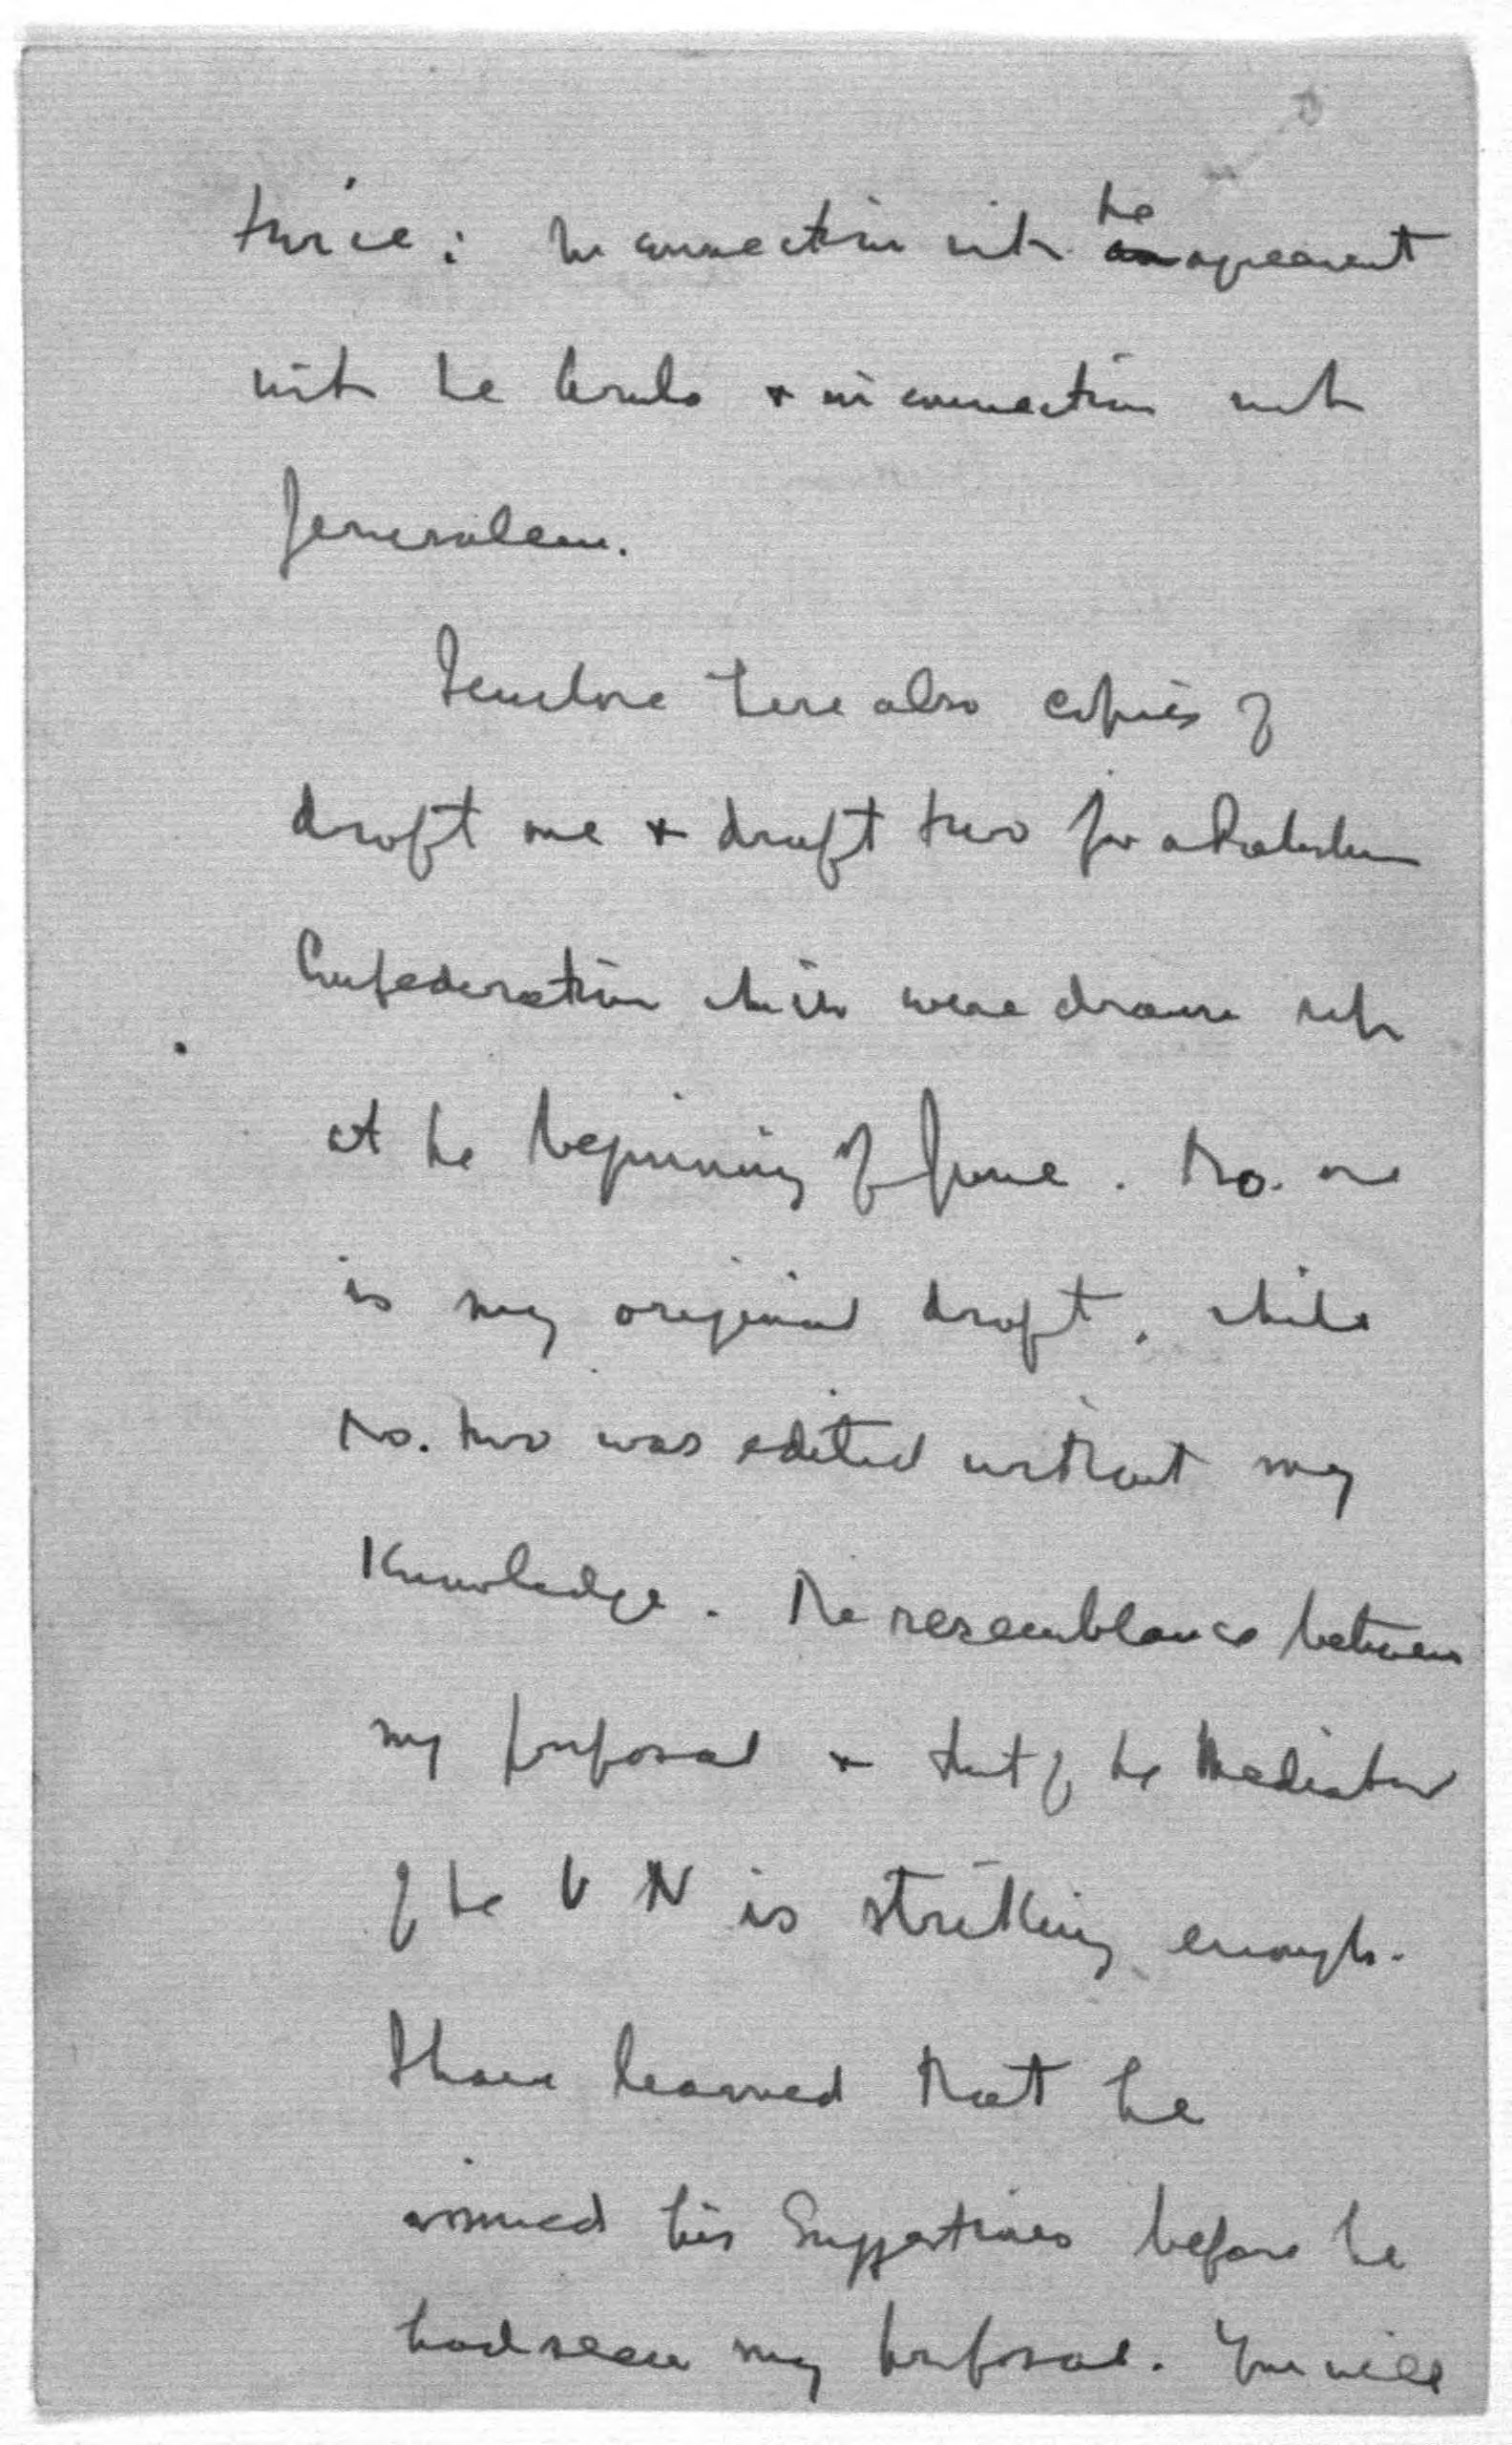 twice: in connection with the
an agreement
with the Arabs + in connection with
Jerusalem.
I enclose here also copies of
draft one + draft two for a Palestine
Confederation which were drawn up
at the beginning of June. No. one
is my original draft, while
No. two was edited without my
Knowledge. The resemblance between
my proposal + that of the Mediator
of the U N is striking enough.
I have learned that he
issued his Suggestions before he
had seen my proposal. You will